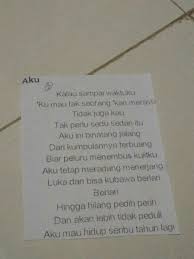 Aku
Kalau sampai waktuku
'Ku mau tak seorang 'kan merayu
Tidak juga kau
Tak perlu sedu sedan itu
Aku ini binatang jalang
Dari kumpulannya terbuang
Biar peluru menembus kulitku
Aku tetap meradang menerjang
Luka dan bisa kubawa berlari
Berlari
Hingga hilang pedih perih
Dan akan lebih tidak peduli
Aku mau hidup seribu tahun lagi